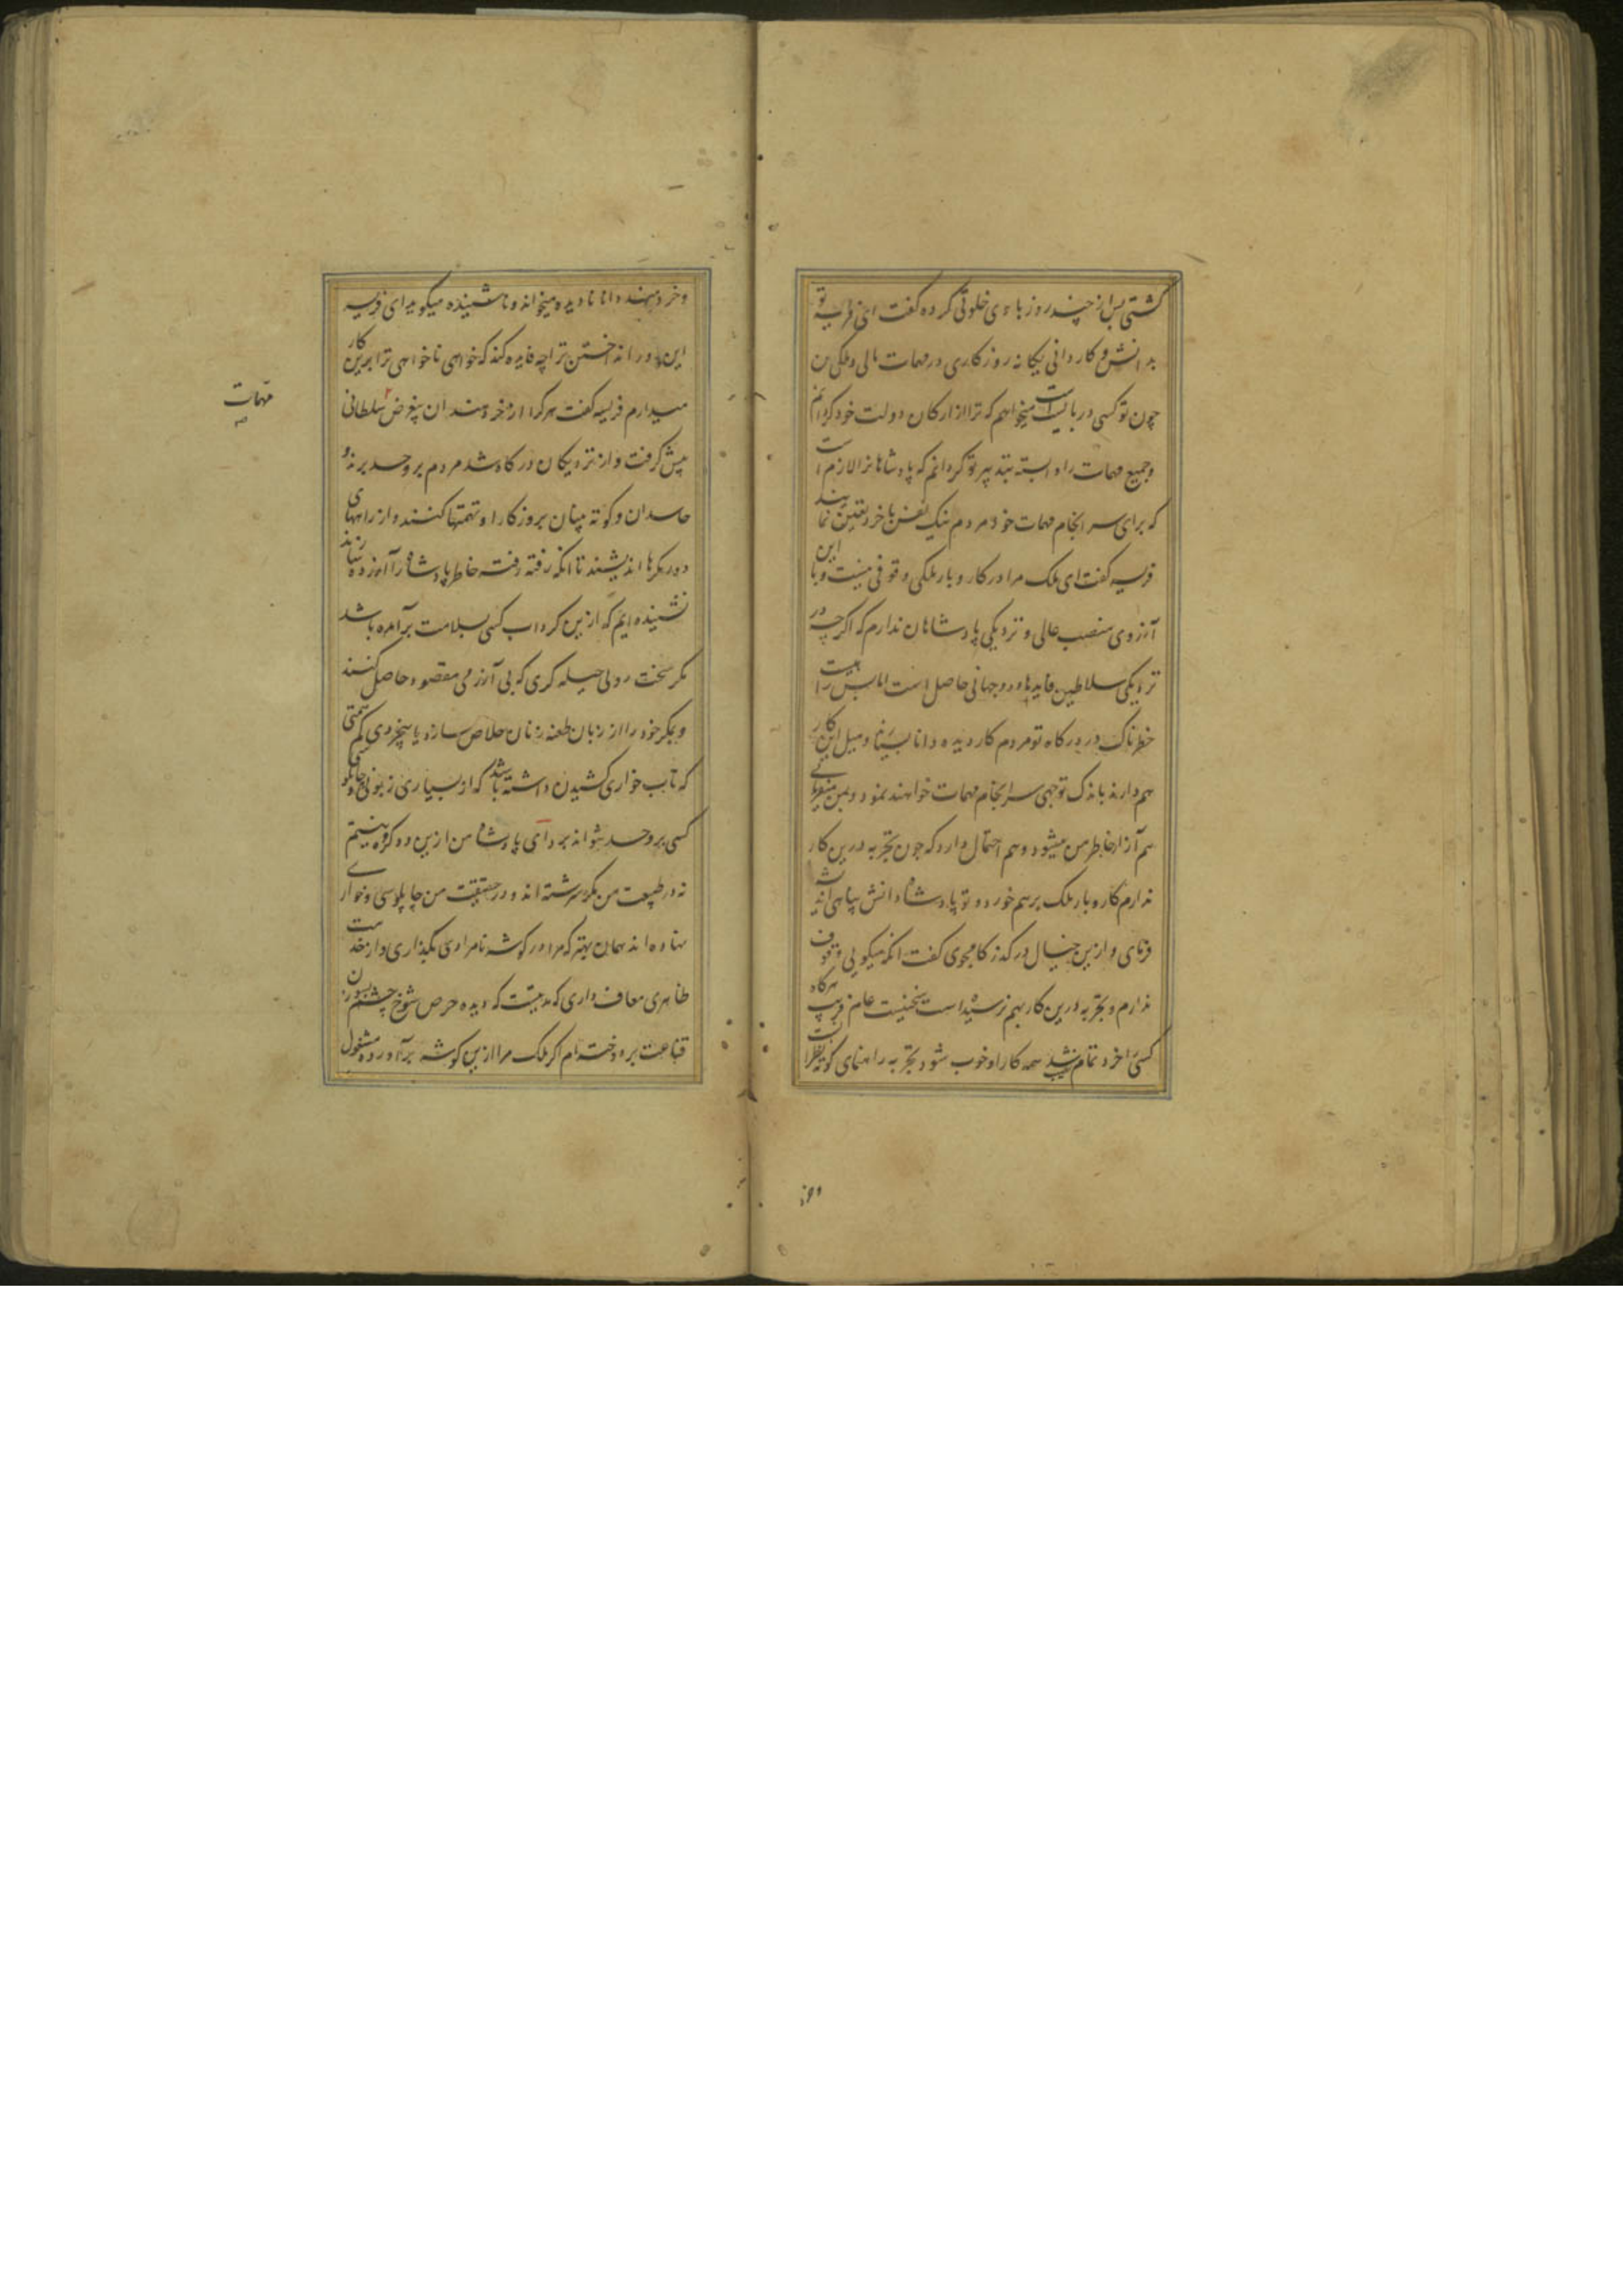 گشتی پس از چند روز با وی خلوتی کرده گفت ای فریسه تو
بدانش و کاردانی یگانه روزگاری و در مهمات مالی و ملکی من
چون تو کسی در بایست است میخواهم که ترا از ارکان دولت خود گردانم
و جمیع مهمات را وابسته بتدبیر تو گردانم که پادشاهانرا لازم است
که برای سرانجام مهمات خود مردم نیک نفس با خرد تعین نمایند
فریسه گفت ای ملک مرا در کار و بار ملکی وقوفی نیست و با این
آرزوی منصب عالی و نزدیکی پادشاهان ندارم که اگرچه در
نزدیکی سلاطین فایدها دو جهانی حاصل است اما بس راهیست
خطرناک در درگاه تو مردم کار دیده دانا بسیار و میل این کار
هم دارند باندک توجهی سرانجام مهمات خواهند نمود و بمن
هم آزار خاطر من میشود و هم احتمال دارد که چون تجربه درین کار
ندارم کار و بار ملک برهم خورد و تو پادشاه دانش پناهی اندیشه
فرمای و ازین خیال درگذر کامجوی گفت انکه میگویی وقوف
ندارم و تجربه درین کار بهم نرسیده است سخنیست عام فریب هرگاه
کسی را خرد تمام باشد همه کار او خوب شود تجربه راهنمای کوته نظرانست
واین
و خردمند دانا نادیده میخواند و ناشنیده میگوید ای فریسه
این دور انداختن ترا چه فایده کند که خواهی ناخواهی ترا برین کار
میدارم فریسه گفت هرکرا از خردمندان بیغرض سلطانی
مهمات
پیش گرفت و از نزدیکان درگاه شد مردم بر وحسد برند و
حاسدان و کوته بینان بروز کار او تهمتها کنند و از راههای
دور مکرها اندیشند تا انکه رفته رفته خاطر پادشاه را آزرده سازند
نشنیده ایم که ازین گرداب کسی بسلامت برآمده باشد
مگر سخت رویی حیله گری که بی آزرمی مقصود حاصل کند
و بمکر خود را از زبان طعنه زنان خلاص سازد یا بیخردی کم همتی
که تاب خواری کشیدن داشته باشد که از بسیاری زبونی و
کسی بر وحسد نتواند برد ای پادشاه من ازین دو گروه نیستم
نه در طبیعت من مکر سرشته اند و در حقیقت من چاپلوسی و خواری
نهاده اند همان بهتر که مرا در گوشه نامرادی بگذاری و از خدمت
ظاهری معاف داری که مدتیست که دیده حرص شوخ چشم بسوزن
قناعت بردوخته ام اگر ملک مرا ازین گوشه برآورده مشغول